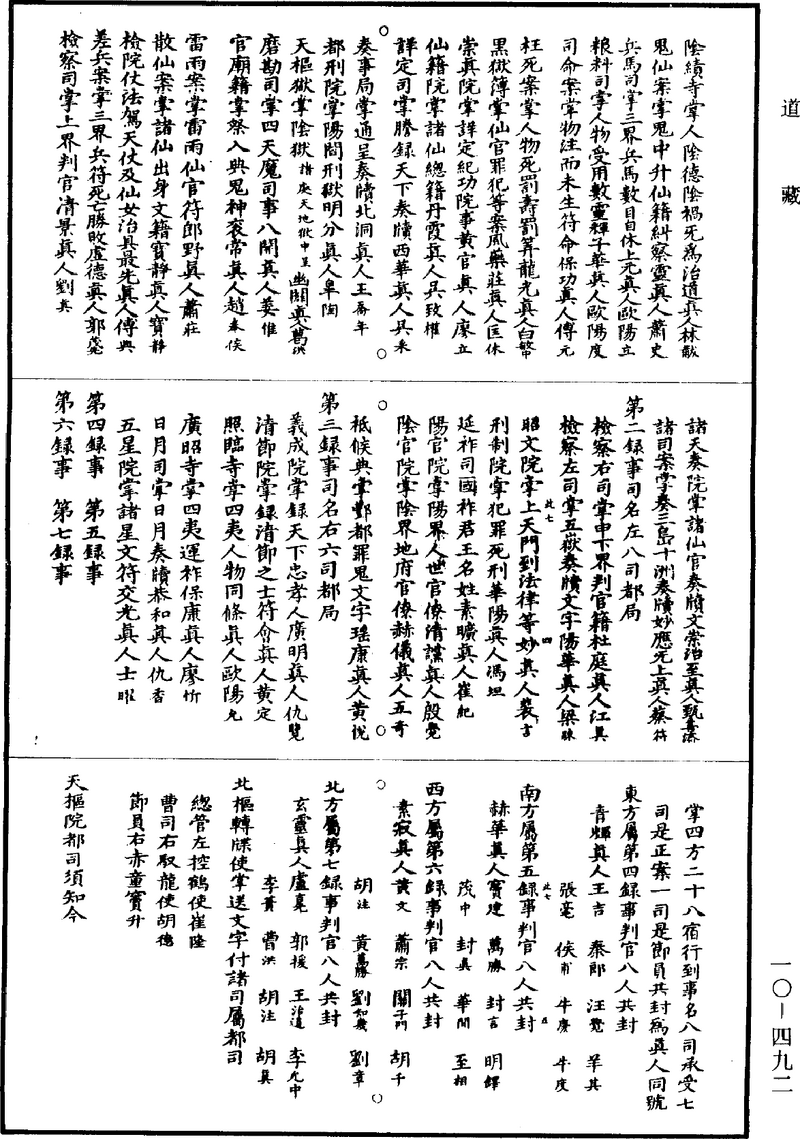 道藏
陰績寺掌人陰德陰禍死為治道真人林猷
鬼仙案掌鬼中升仙籍糾察靈真人蕭史
兵馬司掌三界兵馬數目自休上元真人歐陽立
粮料司掌人物受用數靈輝子華真人歐陽度
司命案掌物注而未生符命保功真人傅元
枉死案掌人物死罰壽罰筭龍光真人白幣
黑獄簿掌仙官罪犯等案風藥莊真人匡休
崇真院掌詳定紀功院事黄官真人廖立
仙籍院掌諸仙總籍丹霞真人吳致權
詳定司掌謄録天下奏牘西華真人吳釆
奏事局掌通呈奏牘北洞真人王喬年
都刑院掌陽間刑獄明分真人皐陶
天樞獄掌陰獄 幽關真人葛洪
磨勘司掌四天魔司事八開真人姜惟
官廟籍掌祭入典鬼神衮常真人趙奉侯
雷雨案掌雷雨仙官符郎野真人蕭莊
散仙案掌諸仙出身文籍寳靜真人寶靜
檢院仗法駕天仗及仙女治具最先真人傅興
差兵案掌三界兵符死亡勝敗盧德真人郭
檢察司掌上界判官清景真人劉真
諸天奏院掌諸仙官奏牘文崇治至真人甄
諸司案掌奏三島十洲奏牘妙應无上真人蔡符
第二録事司名左八司都局
檢察右司掌申下界判官籍杜庭真人江具
檢察左司掌五嶽奏牘文字陽華真人梁
昭文院掌上天門到法律等妙真人裴言
刑制院掌犯罪死刑華陽真人馮坦
延祚司國祚君王名姓素曠真人崔紀
陽官院掌陽界人世官僚清謹真人殷覺
陰官院掌陰界地府官僚赫儀真人五奇
祗候典掌酆都罪鬼文字瑶康真人黄悦
第三録事司名右六司都局
義成院掌録天下忠孝人廣明真人仇覽
清節院掌録清節之士符會真人黄定
照臨寺掌四夷人物同條真人歐陽允
廣昭寺掌四夷運祚保康真人廖忻
日月司掌日月奏牘恭和真人仇香
五星院掌諸星文符交光真人士
第四録事 第五録事
第六録事 第七録事
掌四方二十八宿行到事名八司承受七
司是正案一司是節員共封為真人同號
東方屬第四録事判官八人共封
青輝真人王吉 秦郎 汪覽 羊其
張毫 侯甫 牛慶 牛度
南方屬第五録事判官八人共封
赫華真人竇建 萬勝 封言 明鐸
茂中 封真 華閒 至相
西方屬第六録事判官八人共封
素寂真人黄文 蕭宗 關子門 胡千
胡注 黄萬勝 劉知幾 劉章
北方屬第七録事判官八人共封
玄靈真人盧㝠 郭援 王治道 李允中
李黄 曹洪 胡注 胡真
北樞轉牒使掌送文字付諸司屬都司
總管左控鶴使崔隆
曹司右馭龍使胡德
節員右赤童竇升
天樞院都司須知令
一〇—四九二